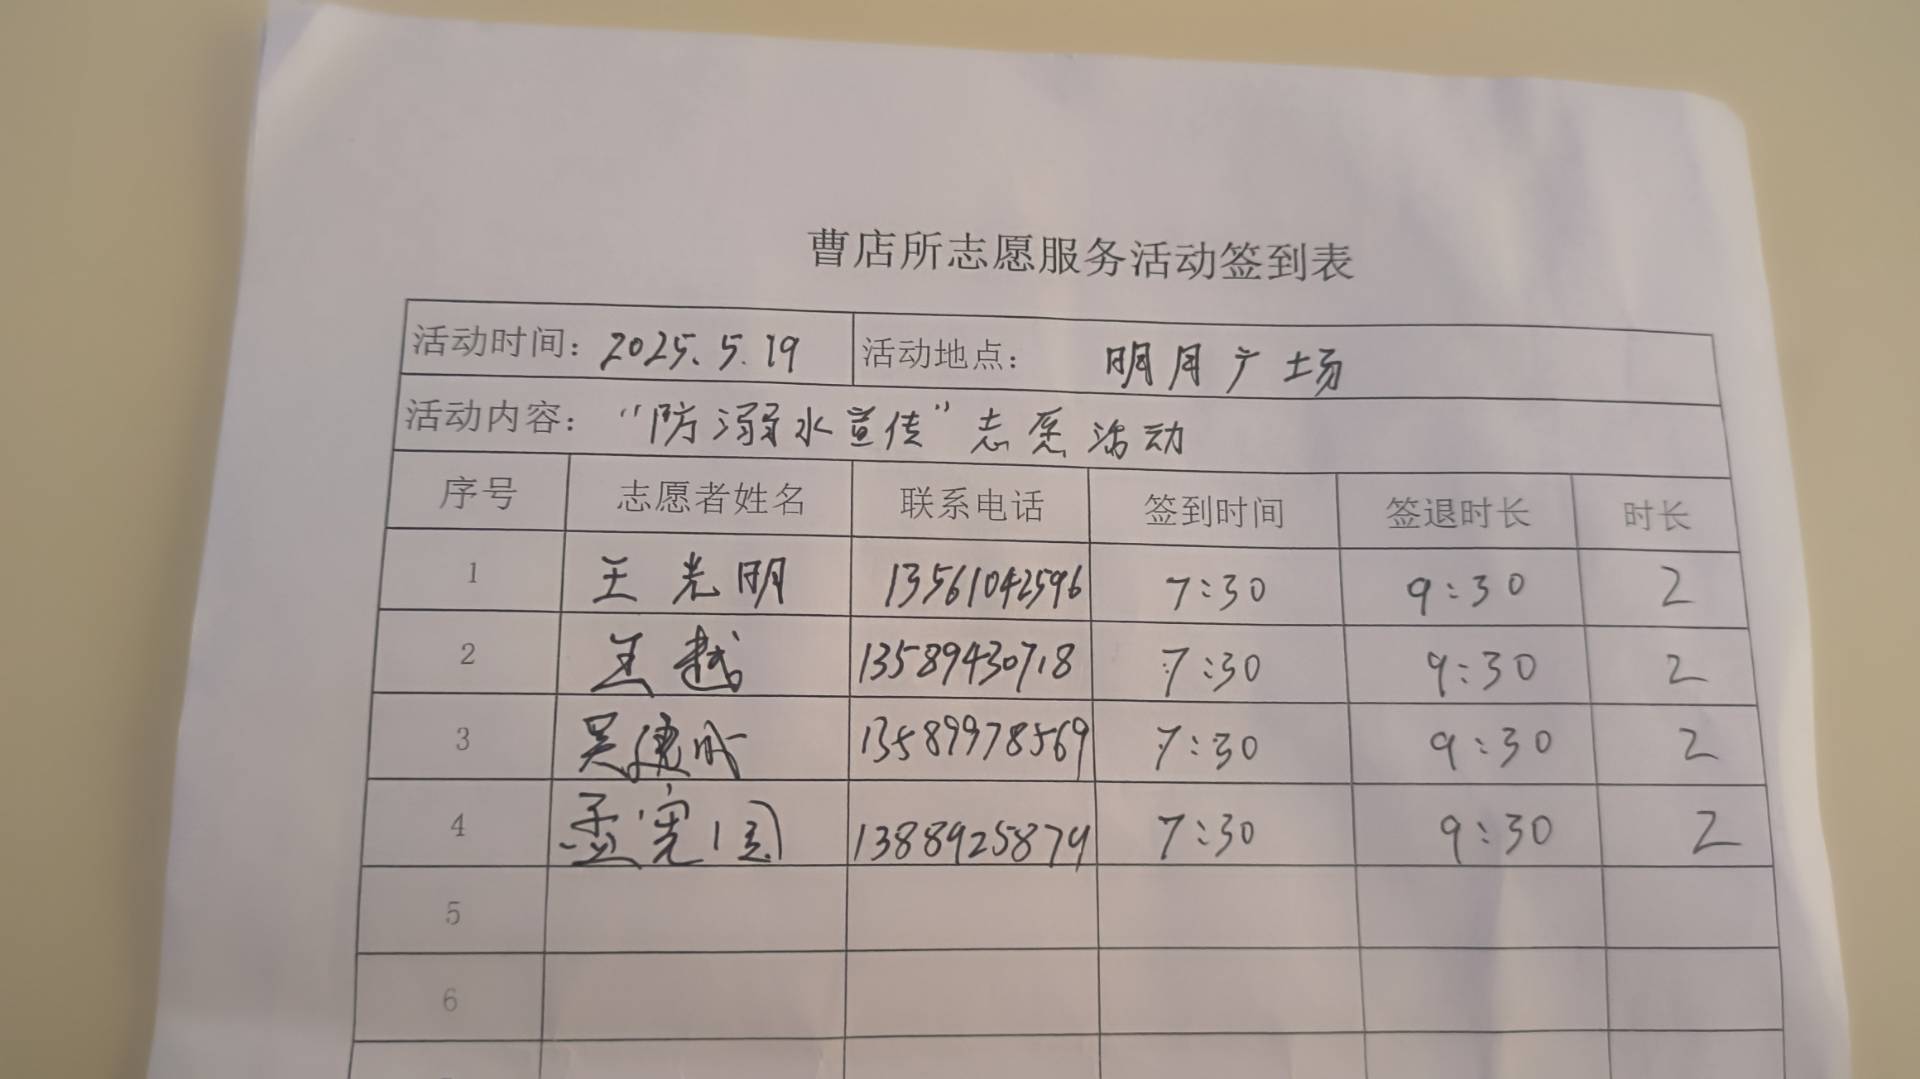 曹店所志愿服务活动签到表
活动时间：2025.5.19 活动地点：明月广场
活动内容：“防溺水宣传”志愿活动
序号 志愿者姓名 联系电话 签到时间 签退时长 时长
1 王光明 13561042596 7:30 9:30 2
2 王越 13589430718 7:30 9:30 2
3 吴建成 13589978569 7:30 9:30 2
4 孟宪国 13889258879 7:30 9:30 2
5
6